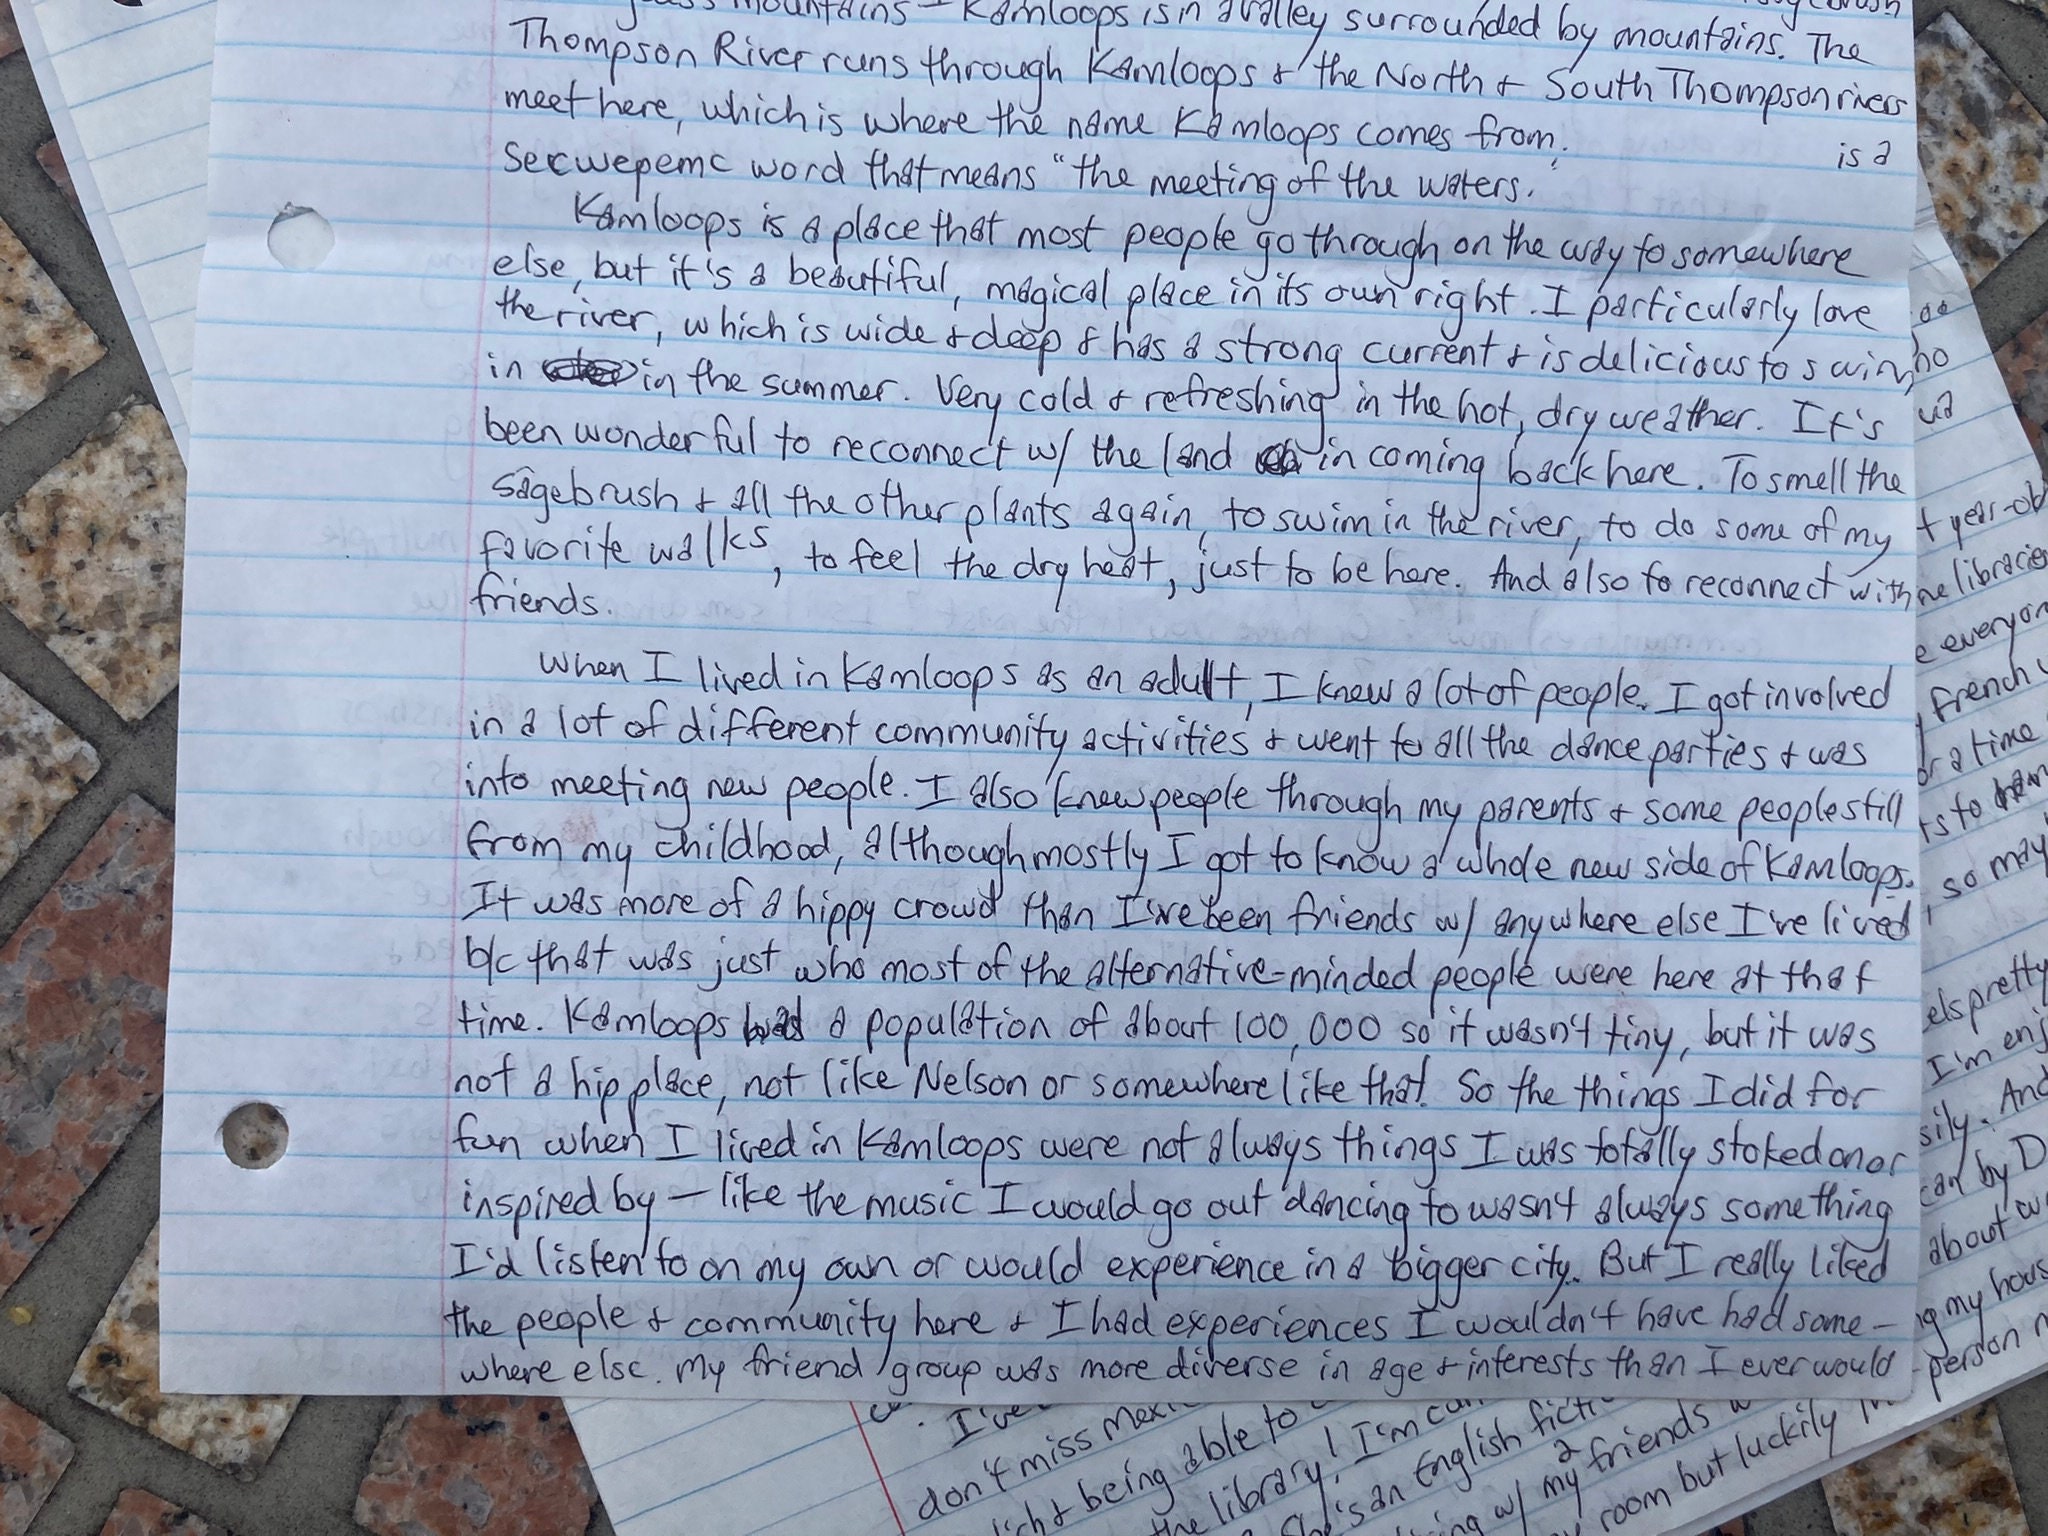 mountains - Kamloops is in a valley surrounded by mountains. The
Thompson River runs through Kamloops + the North + South Thompson rivers
meet here, which is where the name Kamloops comes from.
is a
Secwepemc word that means "the meeting of the waters."
Kamloops is a place that most people go through on the way to somewhere
else, but it's a beautiful, magical place in its own right. I particularly love
the river, which is wide + deep + has a strong current + is delicious to swim
in in the summer. Very cold + refreshing in the hot, dry weather. It's
been wonderful to reconnect w/ the land in coming back here. To smell the
sagebrush + all the other plants again, to swim in the river, to do some of my
favorite walks, to feel the dry heat, just to be here. And also to reconnect with
friends.
When I lived in Kamloops as an adult, I knew a lot of people. I got involved
in a lot of different community activities + went to all the dance parties + was
into meeting new people. I also knew people through my parents + some people still
from my childhood, although mostly I got to know a whole new side of Kamloops.
It was more of a hippy crowd than I've been friends w/ anywhere else I've lived
b/c that was just who most of the alternative-minded people were here at that
time. Kamloops had a population of about 100,000 so it wasn't tiny, but it was
not a hip place, not like Nelson or somewhere like that. So the things I did for
fun when I lived in Kamloops were not always things I was totally stoked on or
inspired by — like the music I would go out dancing to wasn't always something
I'd listen to on my own or would experience in a bigger city. But I really liked
the people + community here + I had experiences I wouldn't have had some-
where else. My friend group was more diverse in age + interests than I ever would
year-old
libraries
everyone
french
a time
so may
pretty
I'm
And
can by D
about
my house
person
I've
don't miss
being able to
the library! I'm
an English
w/ my friends
room but luckily